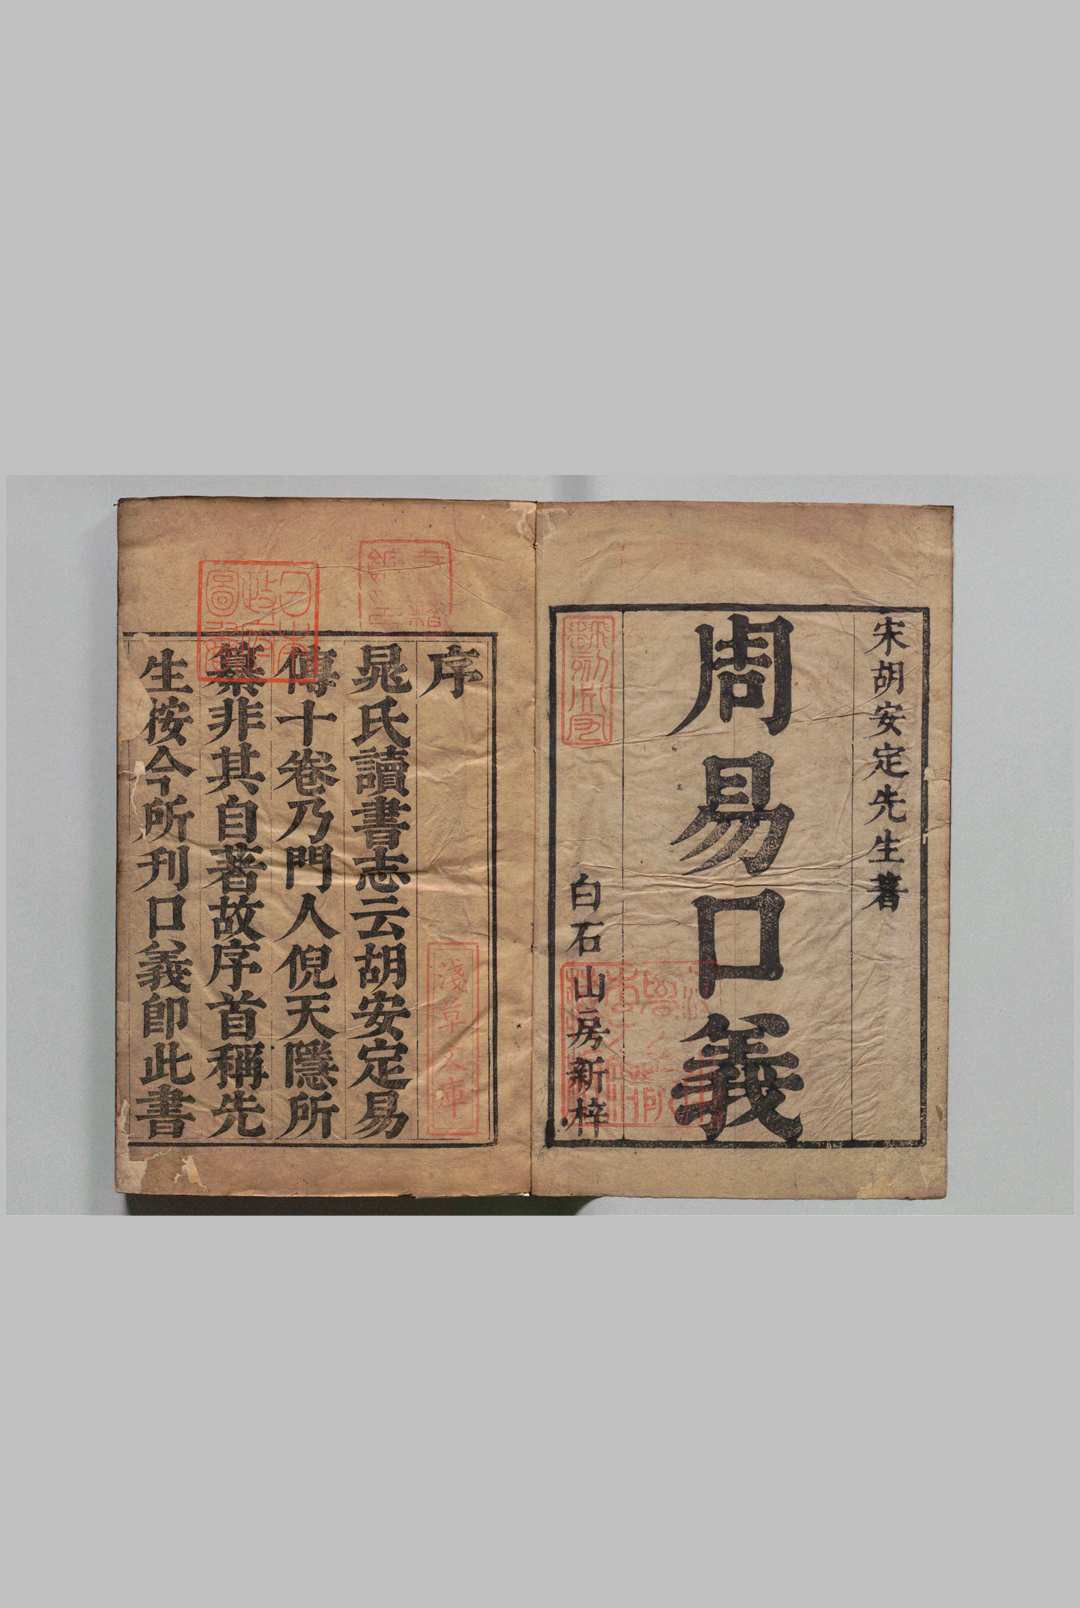 宋胡安定先生著
周易口義
白石山房新梓
序
晁氏讀書志云胡安定易
傳十卷乃門人倪天隱所
纂非其自著故序首稱先
生按今所刊口義即此書
日本政府圖書
淺草文庫